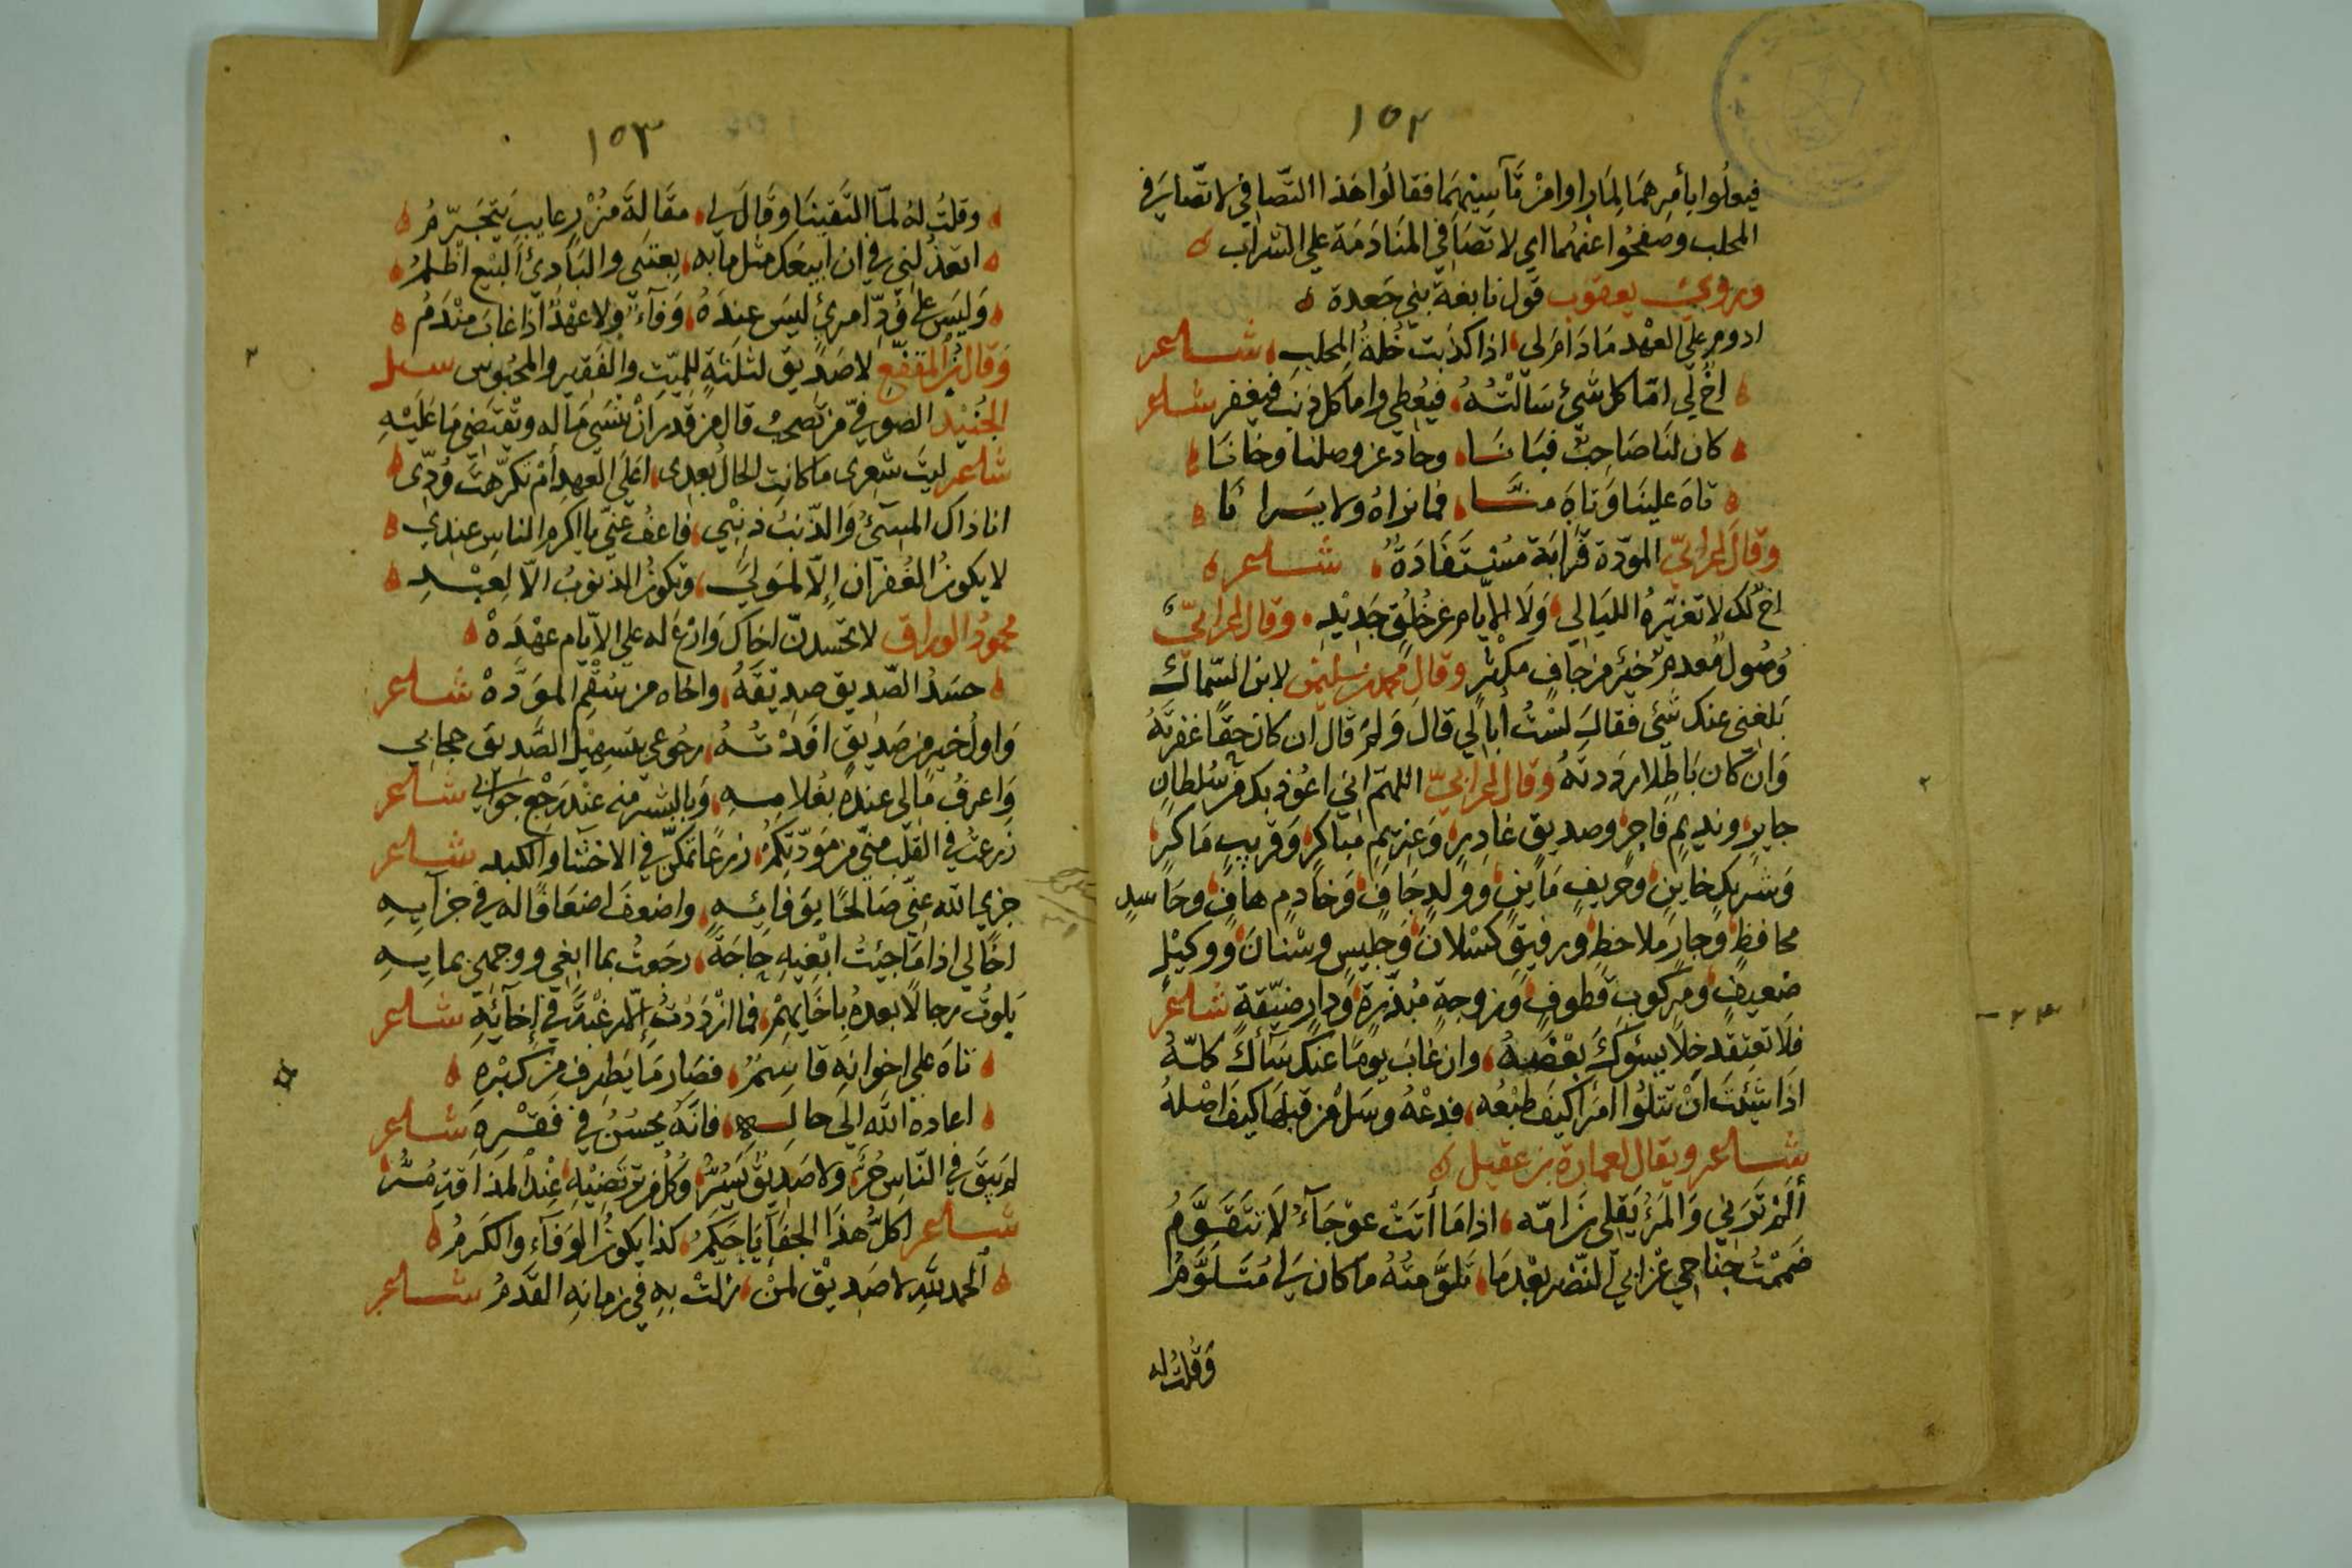 ١٥٢
فيعلوا بأمرهما لما راوا من تآسيهما فقالوا هذا التصافي لا تصافي في
المحلب وصفحوا عنهما اي لا تصافي المنادمة علي الشراب
وروي يعقوب قول نابغة بني جعدة
ادوم علي العهد ما دام لي اذا كذبت خلة المحلب شاعر
اخ لي امّا كل شيء سالته فيعطي واما كل ذنب فيغفر شاعر
كان لنا صاحب فبانا وحاد عن وصلنا وخانا
تاه علينا وتاه منّا فما نراه ولا يرانا
وقال الحراني المودة قرابة مستفادة شاعر
اخ لك لا تغيره الليالي ولا الايام عن خلق جديد وقال الحراني
وصول معدم خير من جاف مكثر وقال محمد بن سليمن لابن السماك
بلغني عنك شيء فقال لست أبالي قال ولم قال ان كان حقا غفرته
وان كان باطلا رددته وقال الحراني اللهم اني اعوذ بك من سلطان
جاير ونديم فاجر وصديق غادر وغريم ماكر وقريب ماكر
وشريك خاين وحريف ماين وولد جاف وخادم هاف وحاسد
محافظ وجار ملاحظ ورفيق كسلان وجليس وسنان ووكيل
ضعيف ومركوب قطوف وزوجة مبذرة ودار ضيقة شاعر
فلا تعتقد خلا يسؤك بعضه وان غاب يوما عنك سآك كله
اذا شئت ان تبلو امرا كيف طبعه فدعه وسل من قبلها كيف اصله
شاعر ويقال لعمارة بن عقيل
ألم ترني والمرء يقلي بن امّه اذا ما أتت عوجآء لا تتقوّم
ضممت جناحي عن ابي النضر بعدما تلوّمته ما كان لي متلوّم
وقلت له
١٥٣
وقلت له لمّا التقينا وقال لي مقالة مزور عايب يتجرّم
اتعذلني في ان ابيعك مثل ما به بعتني والبادئ البيع اظلم
وليس علي ودّ امرئ ليس عنده وفآء ولا عهد اذا غاب مندم
وقال بن المقفع لا صديق لثلثة للميت والفقير والمحبوس سئل
الجنيد الصوفي من تصحب قال من قدر ان ينسى ما له ويقتضى ما عليه
شاعر ليت شعرى ما كانت الحال بعدى اعلي العهد أم نكرهت ودّى
انا ذاك المسئ والذنب ذنبي فاعف عنّي يا اكرم الناس عندي
لا يكون الغفران إلا لمولي وتكون الذنوب الا لعبد
محمود الوراق لا تحسدنّ اخاك وارع له علي الايام عهده
حسد الصديق صديقه واخاه من سقم المودّه شاعر
واول خير من صديق افدته رجوعي بتسهيل الصديق حجابي
واعرف ما لي عنده بغلامه وبالبشر منه عند رجع جوابي شاعر
زرعت في القلب منّي من مودّتكم زرعا تمكن في الاحشا والكبد شاعر
جزي الله عنّي صالحا بوفائه واضعف اضعافا له في جزآيه
اخا لي اذا ما جئت ابغيه حاجة رجعت بما ابغي ووجهي بمايه
بلوت رجالا بعده باخايهم فما ازددت إلا رغبة في إخآئه شاعر
تاه علي اخوانه قاسم فصار ما يطرف من كبره
اعاده الله الى حاله فانّه يحسن في فقره شاعر
لم يبق في الناس حر ولا صديق يسرّ وكل من ترتضيه عند المذاقة مرّ
شاعر اكلّ هذا الجفآ يا حكم كذا يكون الوفآء والكرم
الحمد لله لا صديق لمن زلت به في زمانه القدم شاعر